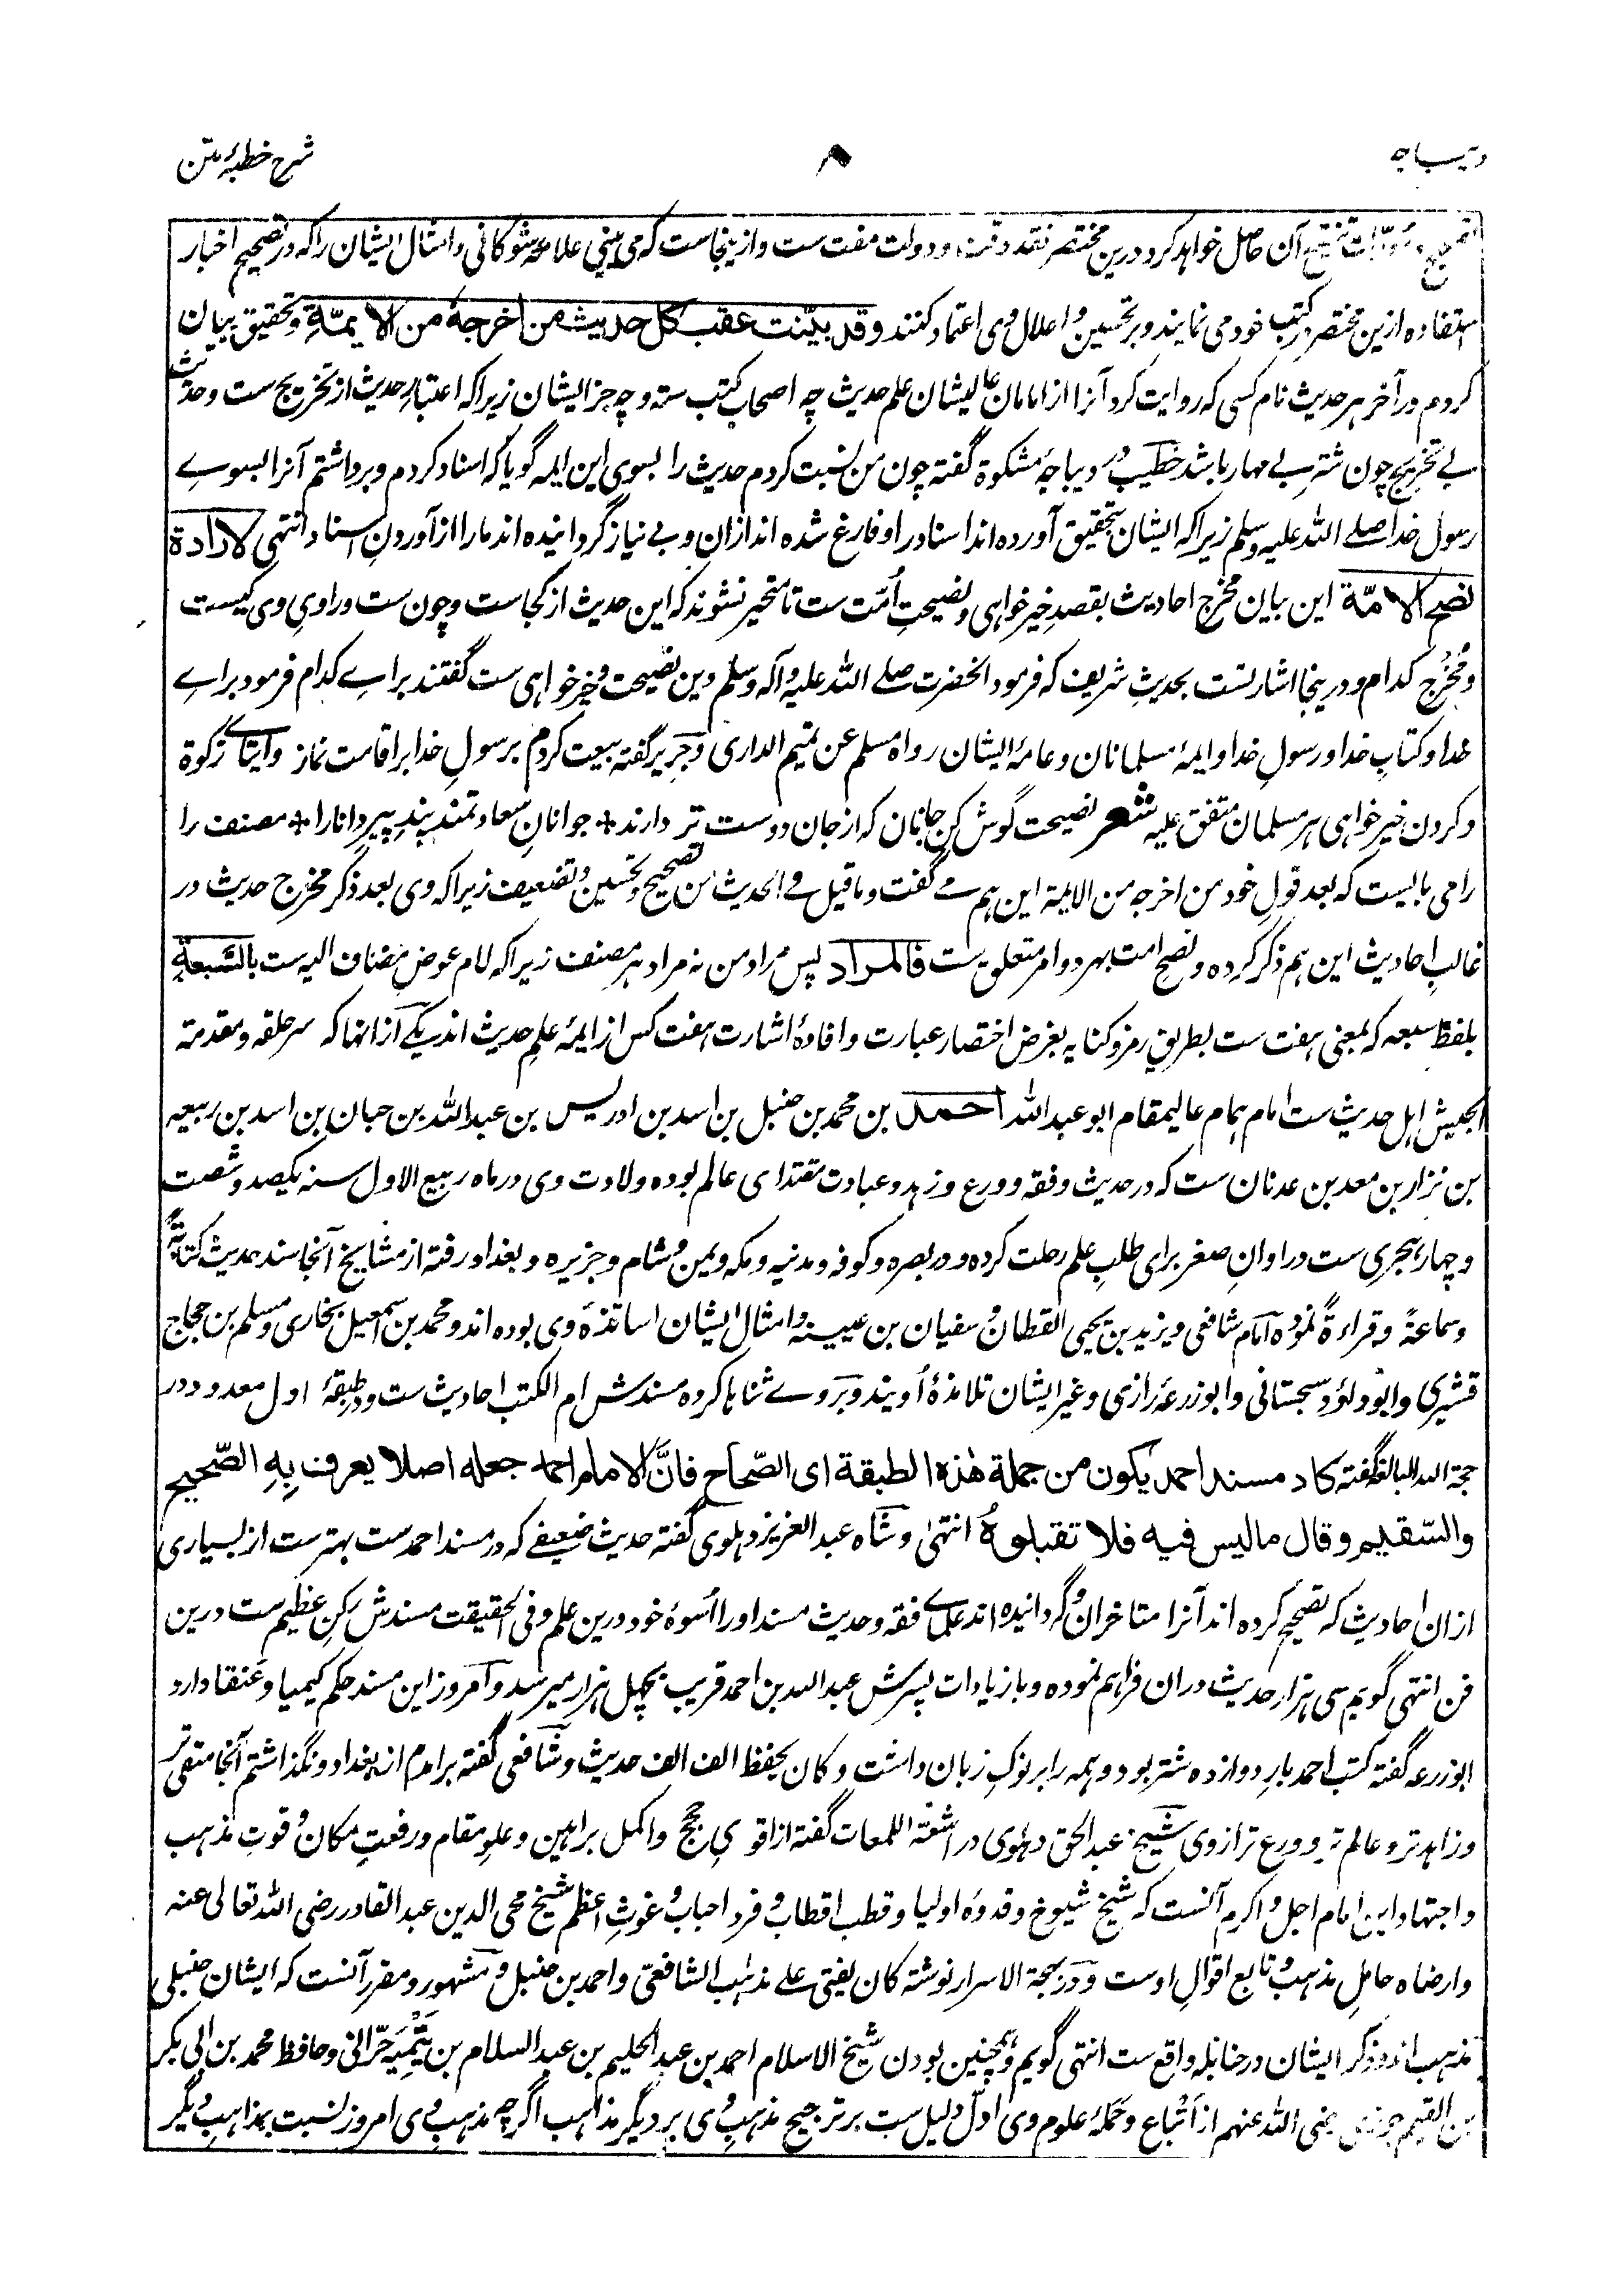 دیباچه
۸
شرح خطبهٔ متن
تنقیح آن حاصل خواهد کرد درین مختصر نقد وقت و دولت مفت ست و ازینجاست که می بینی علامه شوکانی و امثال ایشان را که در تصحیح اخبار
استفاده ازین مختصر در کتب خود می نمایند و بر تحسین و اعلال وی اعتماد کنند وقد بیّنت عقب کل حدیث من اخرجهٔ من الایمّة و تحقیق بیان
کردم در آخر هر حدیث نام کسی که روایت کرد آنرا از امامان عالیشان علم حدیث چه اصحاب کتب سته و چه جز ایشان زیرا که اعتبارِ حدیث از تخریج ست و حدیث
بے تخریج چون شتر بے مهار باشد خطیب در دیباچهٔ مشکوة گفته چون من نسبت کردم حدیث را بسوی این ایمه گویا که اسناد کردم و برداشتم آنرا بسوے
رسول خدا صلے الله علیه وسلم زیرا که ایشان بتحقیق آورده اند اسناد را و فارغ شده اند ازان و بی نیاز گردانیده اند ما را از آوردنِ اسناد انتهی لارادة
نصح الامّة این بیان مخرج احادیث بقصدِ خیر خواهی و نصیحتِ اُمّت ست تا متحیر نشوند که این حدیث از کجاست و چون ست و راویِ وی کیست
و مُخْرِج کدام و درینجا اشارتست بحدیثِ شریف که فرمود آنحضرت صلے الله علیه و آله وسلم دین نصیحت و خیر خواهی ست گفتند براے کدام فرمود براے
خدا و کتابِ خدا و رسولِ خدا و ایمهٔ مسلمانان و عامهٔ ایشان رواه مسلم عن تمیم الداری و جریر گفته بیعت کردم بر رسولِ خدا بر اقامت نماز و ایتاے زکوة
و کردن خیر خواهی هر مسلمان متفق علیه شعر نصیحت گوش کن جانان که از جان دوست تر دارند * جوانانِ سعادتمند پندِ پیر دانا را * مصنف را
را می بایست که بعد قولِ خود من اخرجه من الایمة این هم مے گفت و ما قیل فی الحدیث من تصحیح و تحسین و تضعیف زیرا که وی بعد ذکر مخرج حدیث در
غالبِ احادیث این هم ذکر کرده و نصح امت بهر دو امر متعلق ست فالمراد پس مراد من نه مراد هر مصنف زیرا که لام عوض مضاف الیه ست بالسّبعةِ
بلفظ سبعه که بمعنی هفت ست بطریقِ رمز و کنایه بغرض اختصار عبارت و افادهٔ اشارت هفت کس از ایمهٔ علمِ حدیث اند یکے از انها که سر حلقه و مقدمة
الجیش اهل حدیث ست امام همام عالیمقام ابو عبد الله احمد بن محمد بن حنبل بن اسد بن ادریس بن عبد الله بن حبان بن اسد بن ربیعه
بن نزار بن معد بن عدنان ست که در حدیث و فقه و ورع و زهد و عبادت مقتدای عالم بوده ولادت وی در ماه ربیع الاول سنه یکصد و شصت
و چهار هجری ست در اوانِ صغر برای طلبِ علم رحلت کرده و در بصره و کوفه و مدنیه و مکه و یمن و شام و جزیره و بغداد رفته از مشایخ آنجا سند حدیث کتابةً
و سماعةً و قراءةً نموده امام شافعی و یزید بن یحیی القطان و سفیان بن عیینه و امثال ایشان اساتذهٔ وی بوده اند و محمد بن اسمعیل بخاری و مسلم بن حجاج
قشیری و ابو داؤد سجستانی و ابو زرعه رازی و غیر ایشان تلامذهٔ اویند و بر وے ثناها کرده مسندش ام الکتب احادیث ست و در طبقهٔ اول معدود در
حجة الله البالغه گفته کاد مسند احمد یکون من جملة هٰذه الطبقة ای الصّحاح فانّ الامام احمد جعله اصلا یعرف بِهِ الصّحیح
والسّقیم وقال مالیس فیه فلا تقبلوهُ انتهٰی و شاه عبد العزیز دهلوی گفته حدیث ضعیفے که در مسند احمد ست بهتر ست از بسیاری
ازان احادیث که تصحیح کرده اند آنرا متاخران و گردانیده اند علمای فقه و حدیث مسند او را اُسوهٔ خود درین علم و فی الحقیقت مسندش رکنِ عظیم ست درین
فن انتهی گویم سی هزار حدیث دران فراهم نموده و با زیادات پسرش عبد الله بن احمد قریب بچهل هزار میرسد و امروز این مسند حکم کیمیا و عنقا دارد
ابو زرعه گفته کتب احمد بارِ دوازده شتر بود و همه را بر نوکِ زبان داشت و کان یحفظ الف الف حدیث و شافعی گفته برامدم از بغداد و نگذاشتم آنجا متقی تر
و زاهد تر و عالم تر و ورع تر از وی شیخ عبد الحق دهلوی در اشعة اللمعات گفته از اقویِ حجج و اکمل براهین و علوِ مقام و رفعتِ مکان و قوتِ مذهب
و اجتهاد این امام اجل و اکرم آنست که شیخ شیوخ و قدوهٔ اولیا و قطب اقطاب و فرد احباب و غوثِ اعظم شیخ محی الدین عبد القادر رضی الله تعالی عنه
و ارضاه حاملِ مذهب و تابع اقوالِ اوست و در بهجة الاسرار نوشته کان یفتی علے مذهب الشافعیّ و احمد بن حنبل و مشهور و مقرر آنست که ایشان حنبلی
مذهب اند و ذکر ایشان در حنابله واقع ست انتهی گویم و همچنین بودن شیخ الاسلام احمد بن عبد الحلیم بن عبد السلام بن تَیْمِیَه حرّانی و حافظ محمد بن ابی بکر
بن القیم جوزی رضی الله عنهم از اَتباع و حملهٔ علوم وی ادلّ دلیل ست بر ترجیح مذهبِ وی بر دیگر مذاهب اگرچه مذهبِ وی امروز نسبت بمذاهبِ دیگر